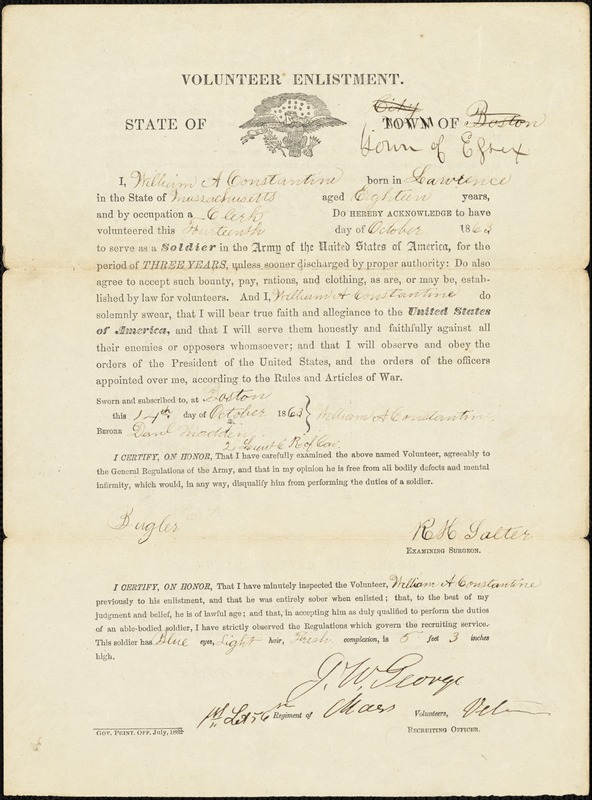 VOLUNTEER ENLISTMENT.
STATE OF City TOWN OF Boston
Town of Essex
I, William A Constantine born in Lawrence
in the State of Massachusetts aged Eighteen years,
and by occupation a Clerk Do HEREBY ACKNOWLEDGE to have
volunteered this day of October 1863
to serve as a Soldier in the Army of the United States of America, for the
period of THREE YEARS, unless sooner discharged by proper authority: Do also
agree to accept such bounty, pay, rations, and clothing, as are, or may be, estab-
lished by law for volunteers. And I, William A Constantine do
solemnly swear, that I will bear true faith and allegiance to the United States
of America, and that I will serve them honestly and faithfully against all
their enemies or opposers whomsoever; and that I will observe and obey
the orders of the President of the United States, and the orders of the officers
appointed over me, according to the Rules and Articles of War.
Sworn and subscribed to, at Boston
this 14th day of October 1863 William A Constantine
BEFORE Danl Madden
2 Lieut 6 R of Cav.
I CERTIFY, ON HONOR, That I have carefully examined the above named Volunteer, agreeably to
the General Regulations of the Army, and that in my opinion he is free from all bodily defects and mental
infirmity, which would, in any way, disqualify him from performing the duties of a soldier.
Bugler
R H Salter
EXAMINING SURGEON.
I CERTIFY, ON HONOR, That I have minutely inspected the Volunteer, William A Constantine
previously to his enlistment, and that he was entirely sober when enlisted; that, to the best of my
judgment and belief, he is of lawful age; and that, in accepting him as duly qualified to perform the duties
of an able-bodied soldier, I have strictly observed the Regulations which govern the recruiting service.
This soldier has Blue eyes, Light hair, Fresh complexion, is 5 feet 3 inches
high.
J. W. George
1st Lt 56 Regiment of Mass Volunteers,
RECRUITING OFFICER.
GOV. PRINT. OFF. July, 1862